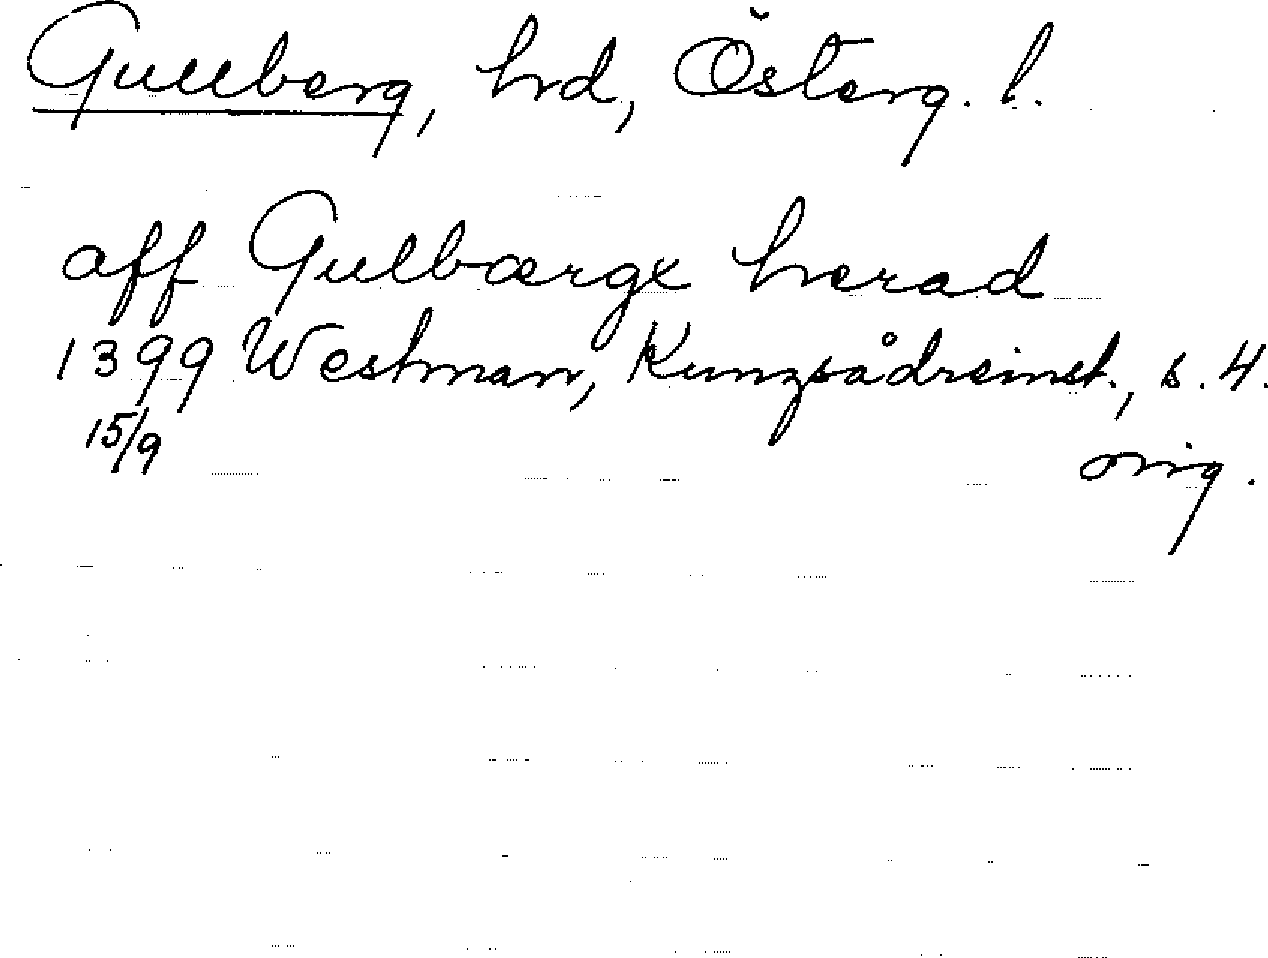 Gullberg, hd, Österg. l.
aff Gulbærgx herad
1399 Westman, Kungsådreinst., s. 4.
15/9 orig.